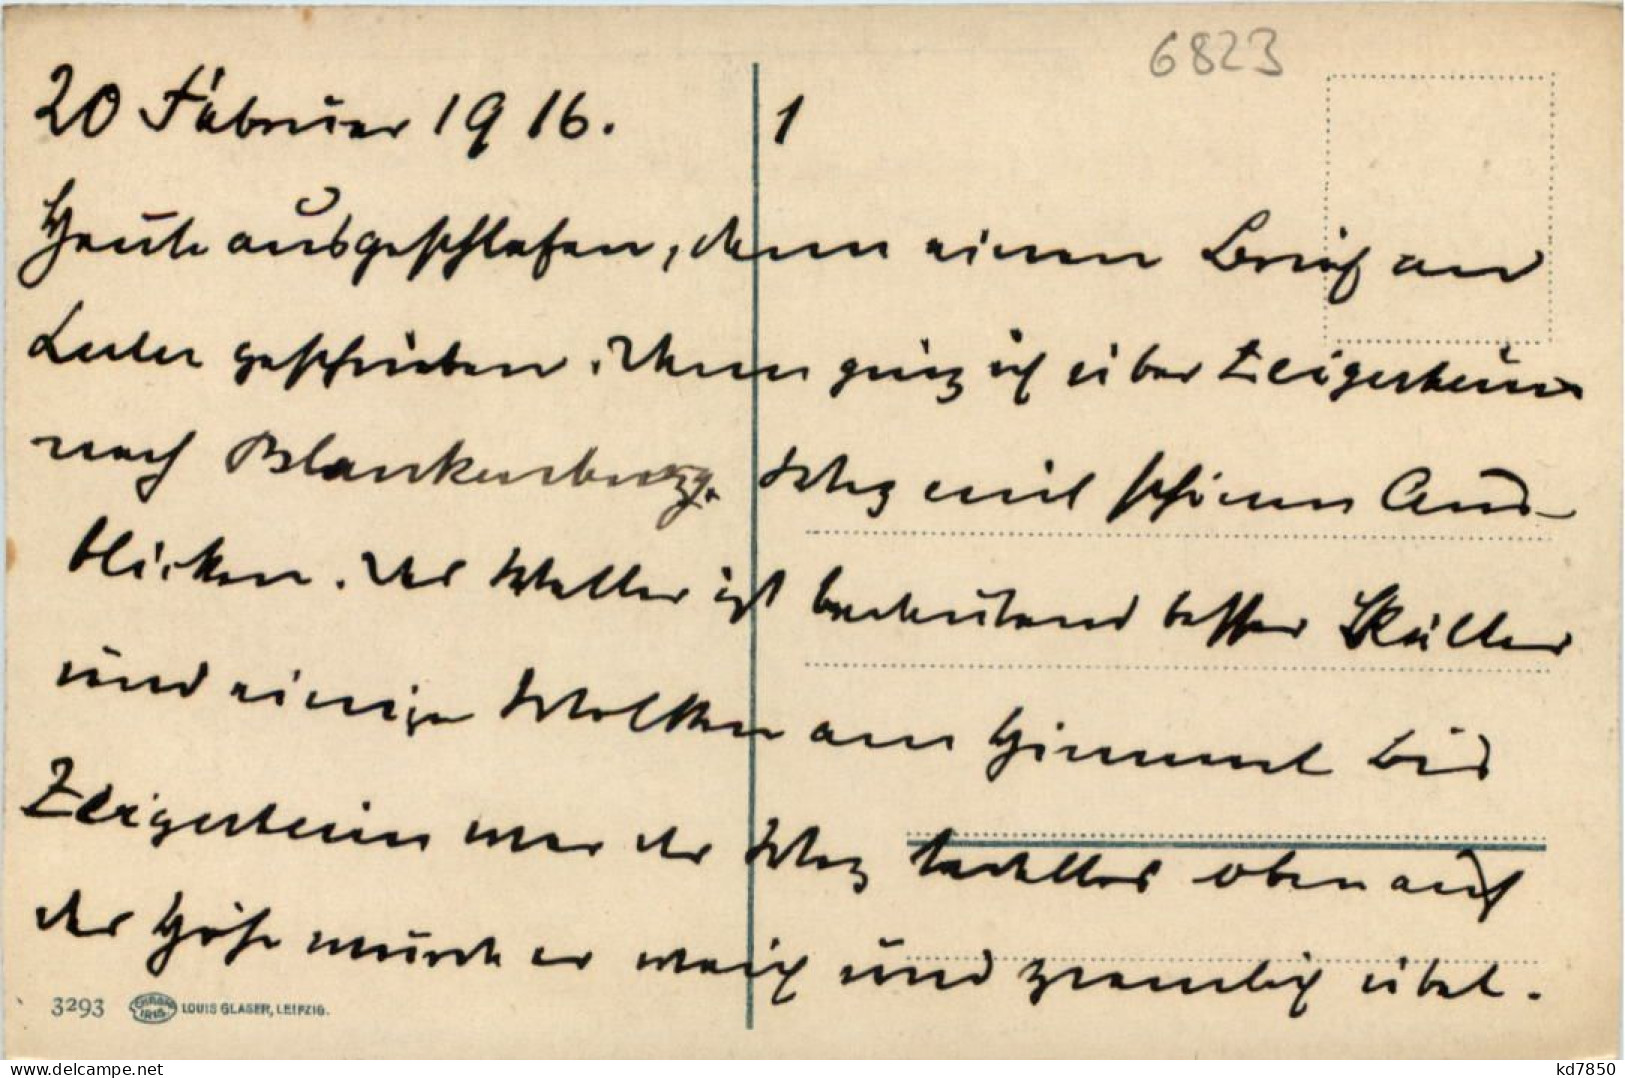 6823
20 Februar 1916. 1
Heute ausgeschlafen, dann einen Brief an
geschrieben. Dann ging ich über Zeigerheim
nach Blankenburg. Weg mit schönen Aus-
blicken. Das Wetter ist bedeutend besser Kälter
und einige Wolken am Himmel bis
Zeigerheim war der Weg tadellos oben auf
der Höhe wurde er weich und ziemlich übel.
3293 CHROM IRIS LOUIS GLASER, LEIPZIG.
kd7850
www.delcampe.net